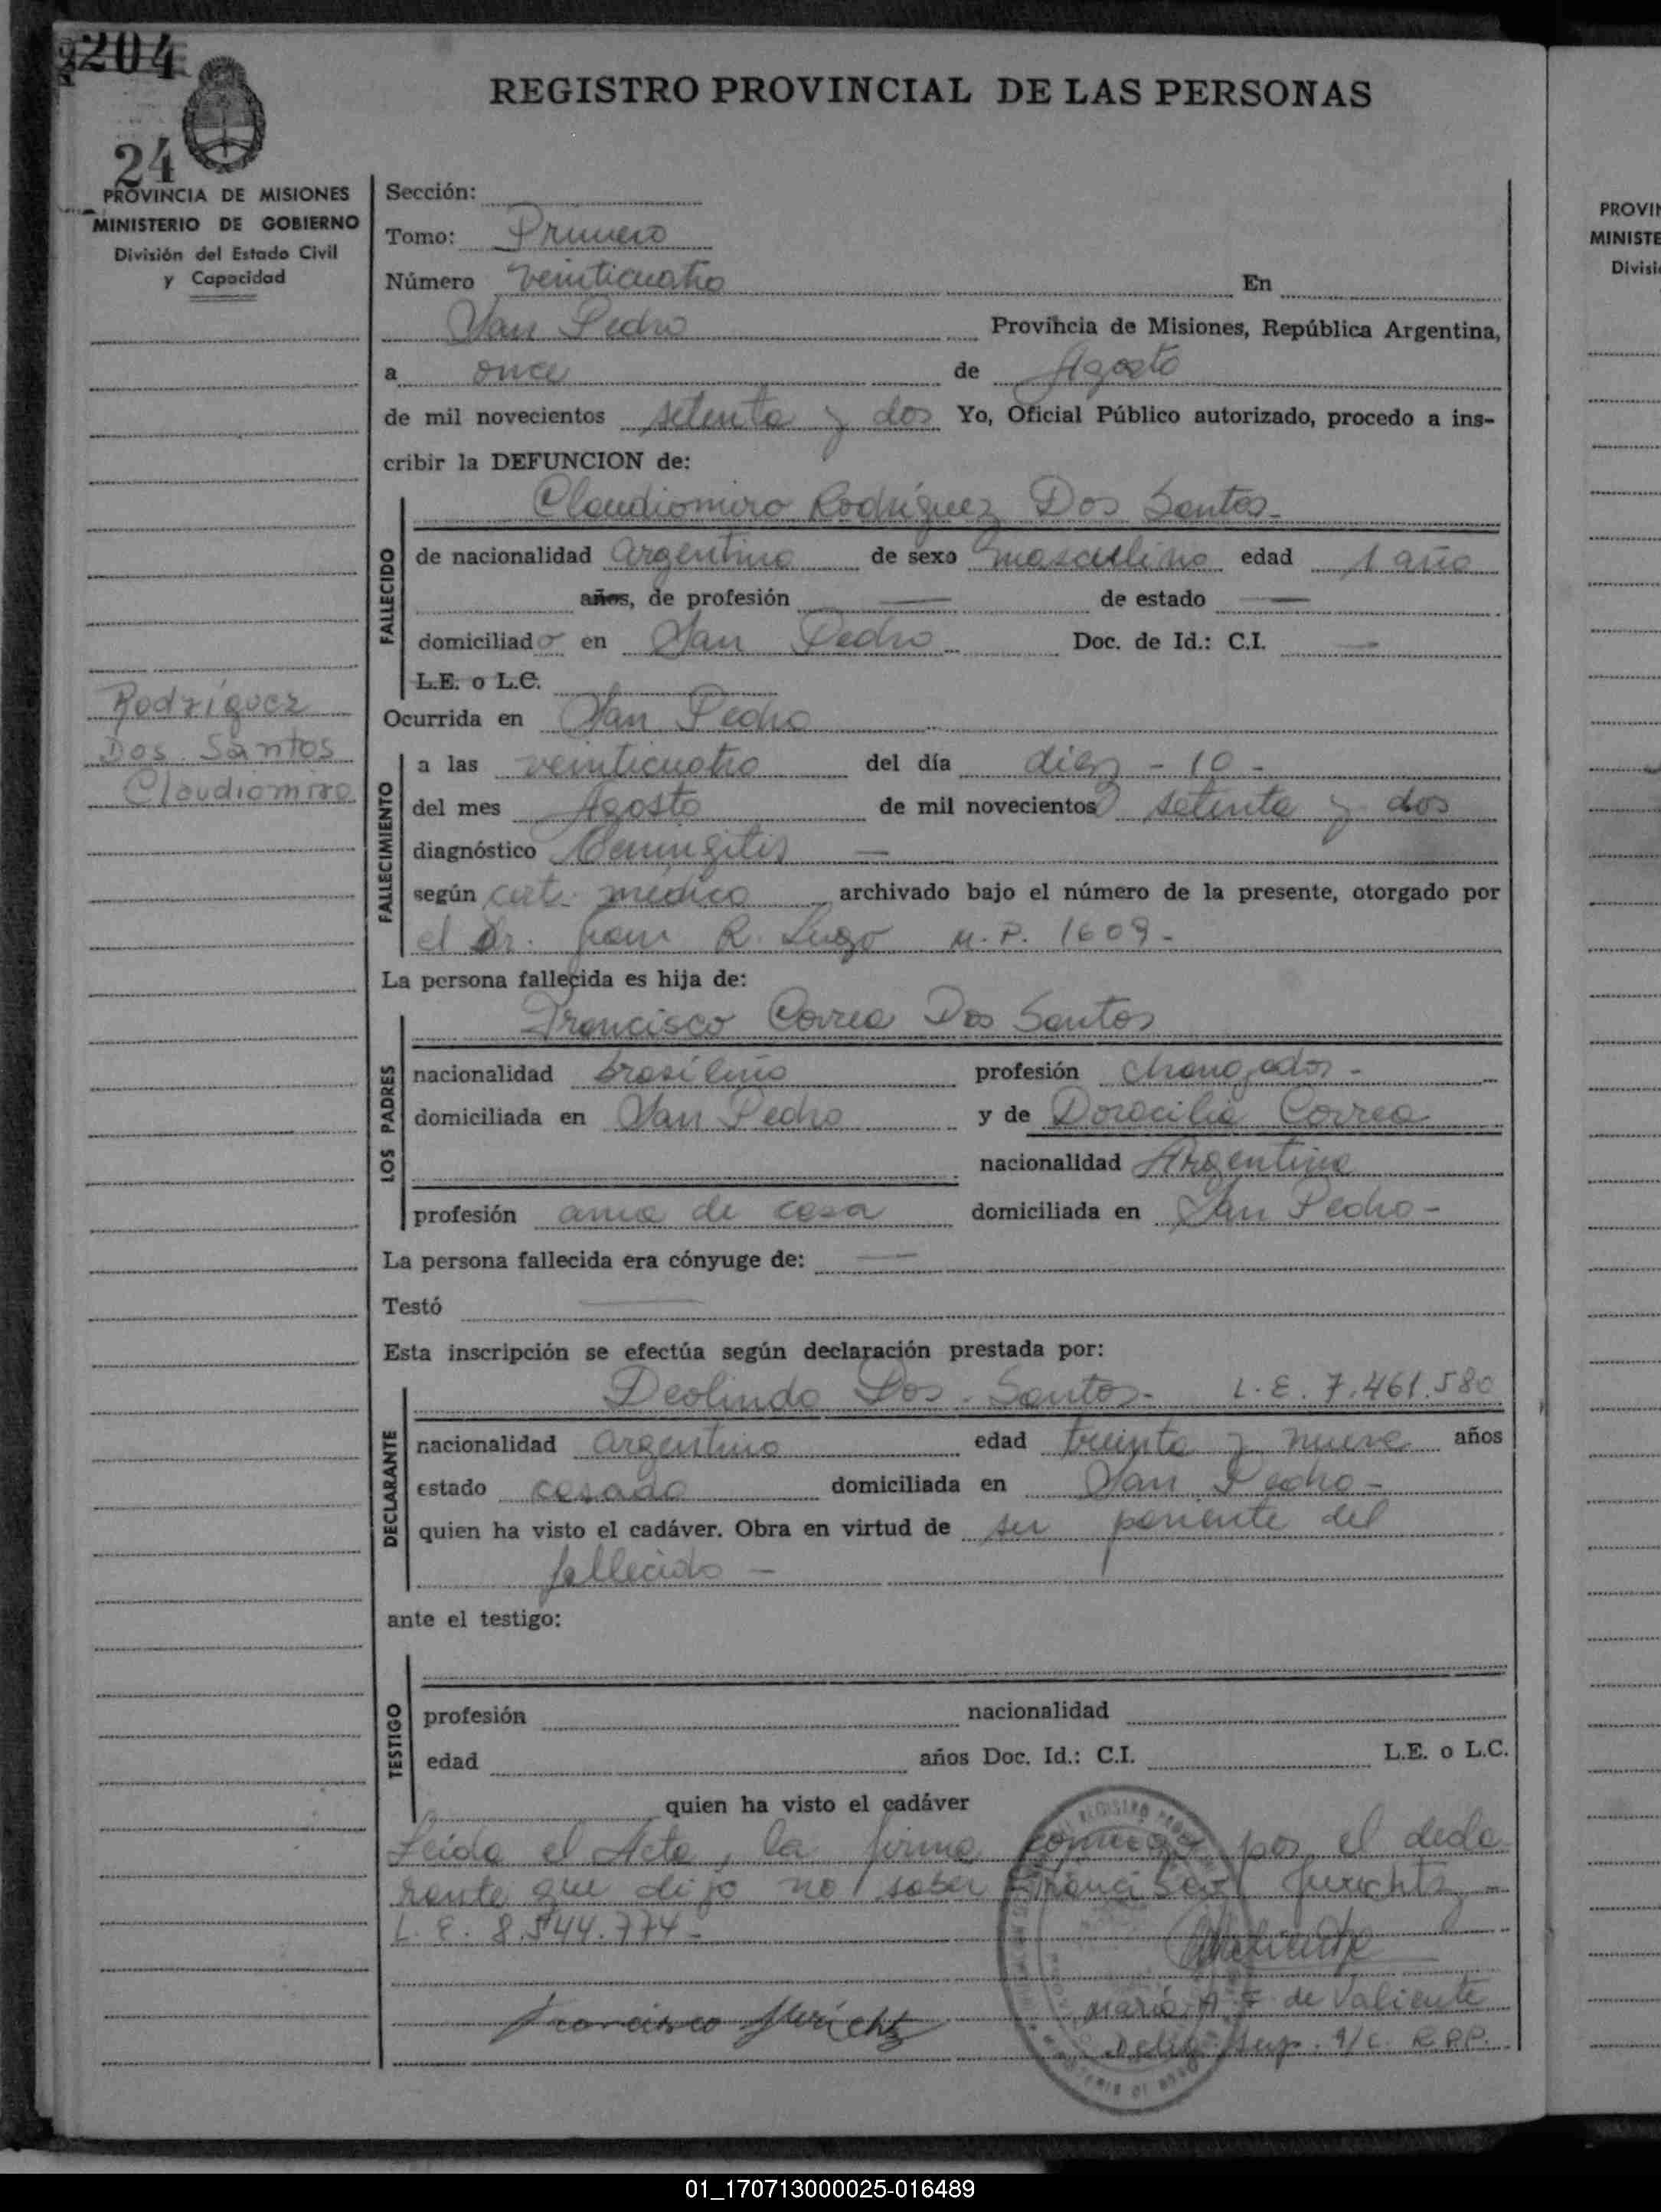 204
REGISTRO PROVINCIAL DE LAS PERSONAS
24
PROVINCIA DE MISIONES
MINISTERIO DE GOBIERNO
División del Estado Civil
y Capacidad
Rodríguez
Dos Santos
Claudiomiro
Sección:
Tomo: Primero
Número veinticuatro En
San Pedro Provincia de Misiones, República Argentina,
a once de Agosto
de mil novecientos setenta y dos Yo, Oficial Público autorizado, procedo a ins-
cribir la DEFUNCION de:
FALLECIDO
Claudiomiro Rodríguez Dos Santos-
de nacionalidad argentina de sexo masculino edad 1 año
años, de profesión — de estado —
domiciliado en San Pedro Doc. de Id.: C.I. —
L.E. o L.C.
Ocurrida en San Pedro
FALLECIMIENTO
a las veinticuatro del día diez - 10 -
del mes Agosto de mil novecientos setenta y dos
diagnóstico Meningitis —
según cert. medico archivado bajo el número de la presente, otorgado por
el Dr. R. Lugo M.P. 1609-
La persona fallecida es hija de:
LOS PADRES
Francisco Correa Dos Santos
nacionalidad brasileño profesión changador -
domiciliada en San Pedro y de Doracilia Correa
nacionalidad Argentina
profesión ama de casa domiciliada en San Pedro-
La persona fallecida era cónyuge de: —
Testó —
Esta inscripción se efectúa según declaración prestada por:
DECLARANTE
Deolindo Dos Santos- L.E. 7.461.580
nacionalidad argentino edad treinta y nueve años
estado casado domiciliada en San Pedro-
quien ha visto el cadáver. Obra en virtud de ser pariente del
fallecido -
ante el testigo:
TESTIGO
profesión nacionalidad
edad años Doc. Id.: C.I. L.E. o L.C.
quien ha visto el cadáver
Leida el Acta, la firma conmigo por el decla
rante que dijo no saber
L.E. 8.544.774-
María A F de Valiente
Deleg. Sup. a/c. R.P.P.
Francisco
PROVIN
MINISTE
Divisi
01_170713000025-016489